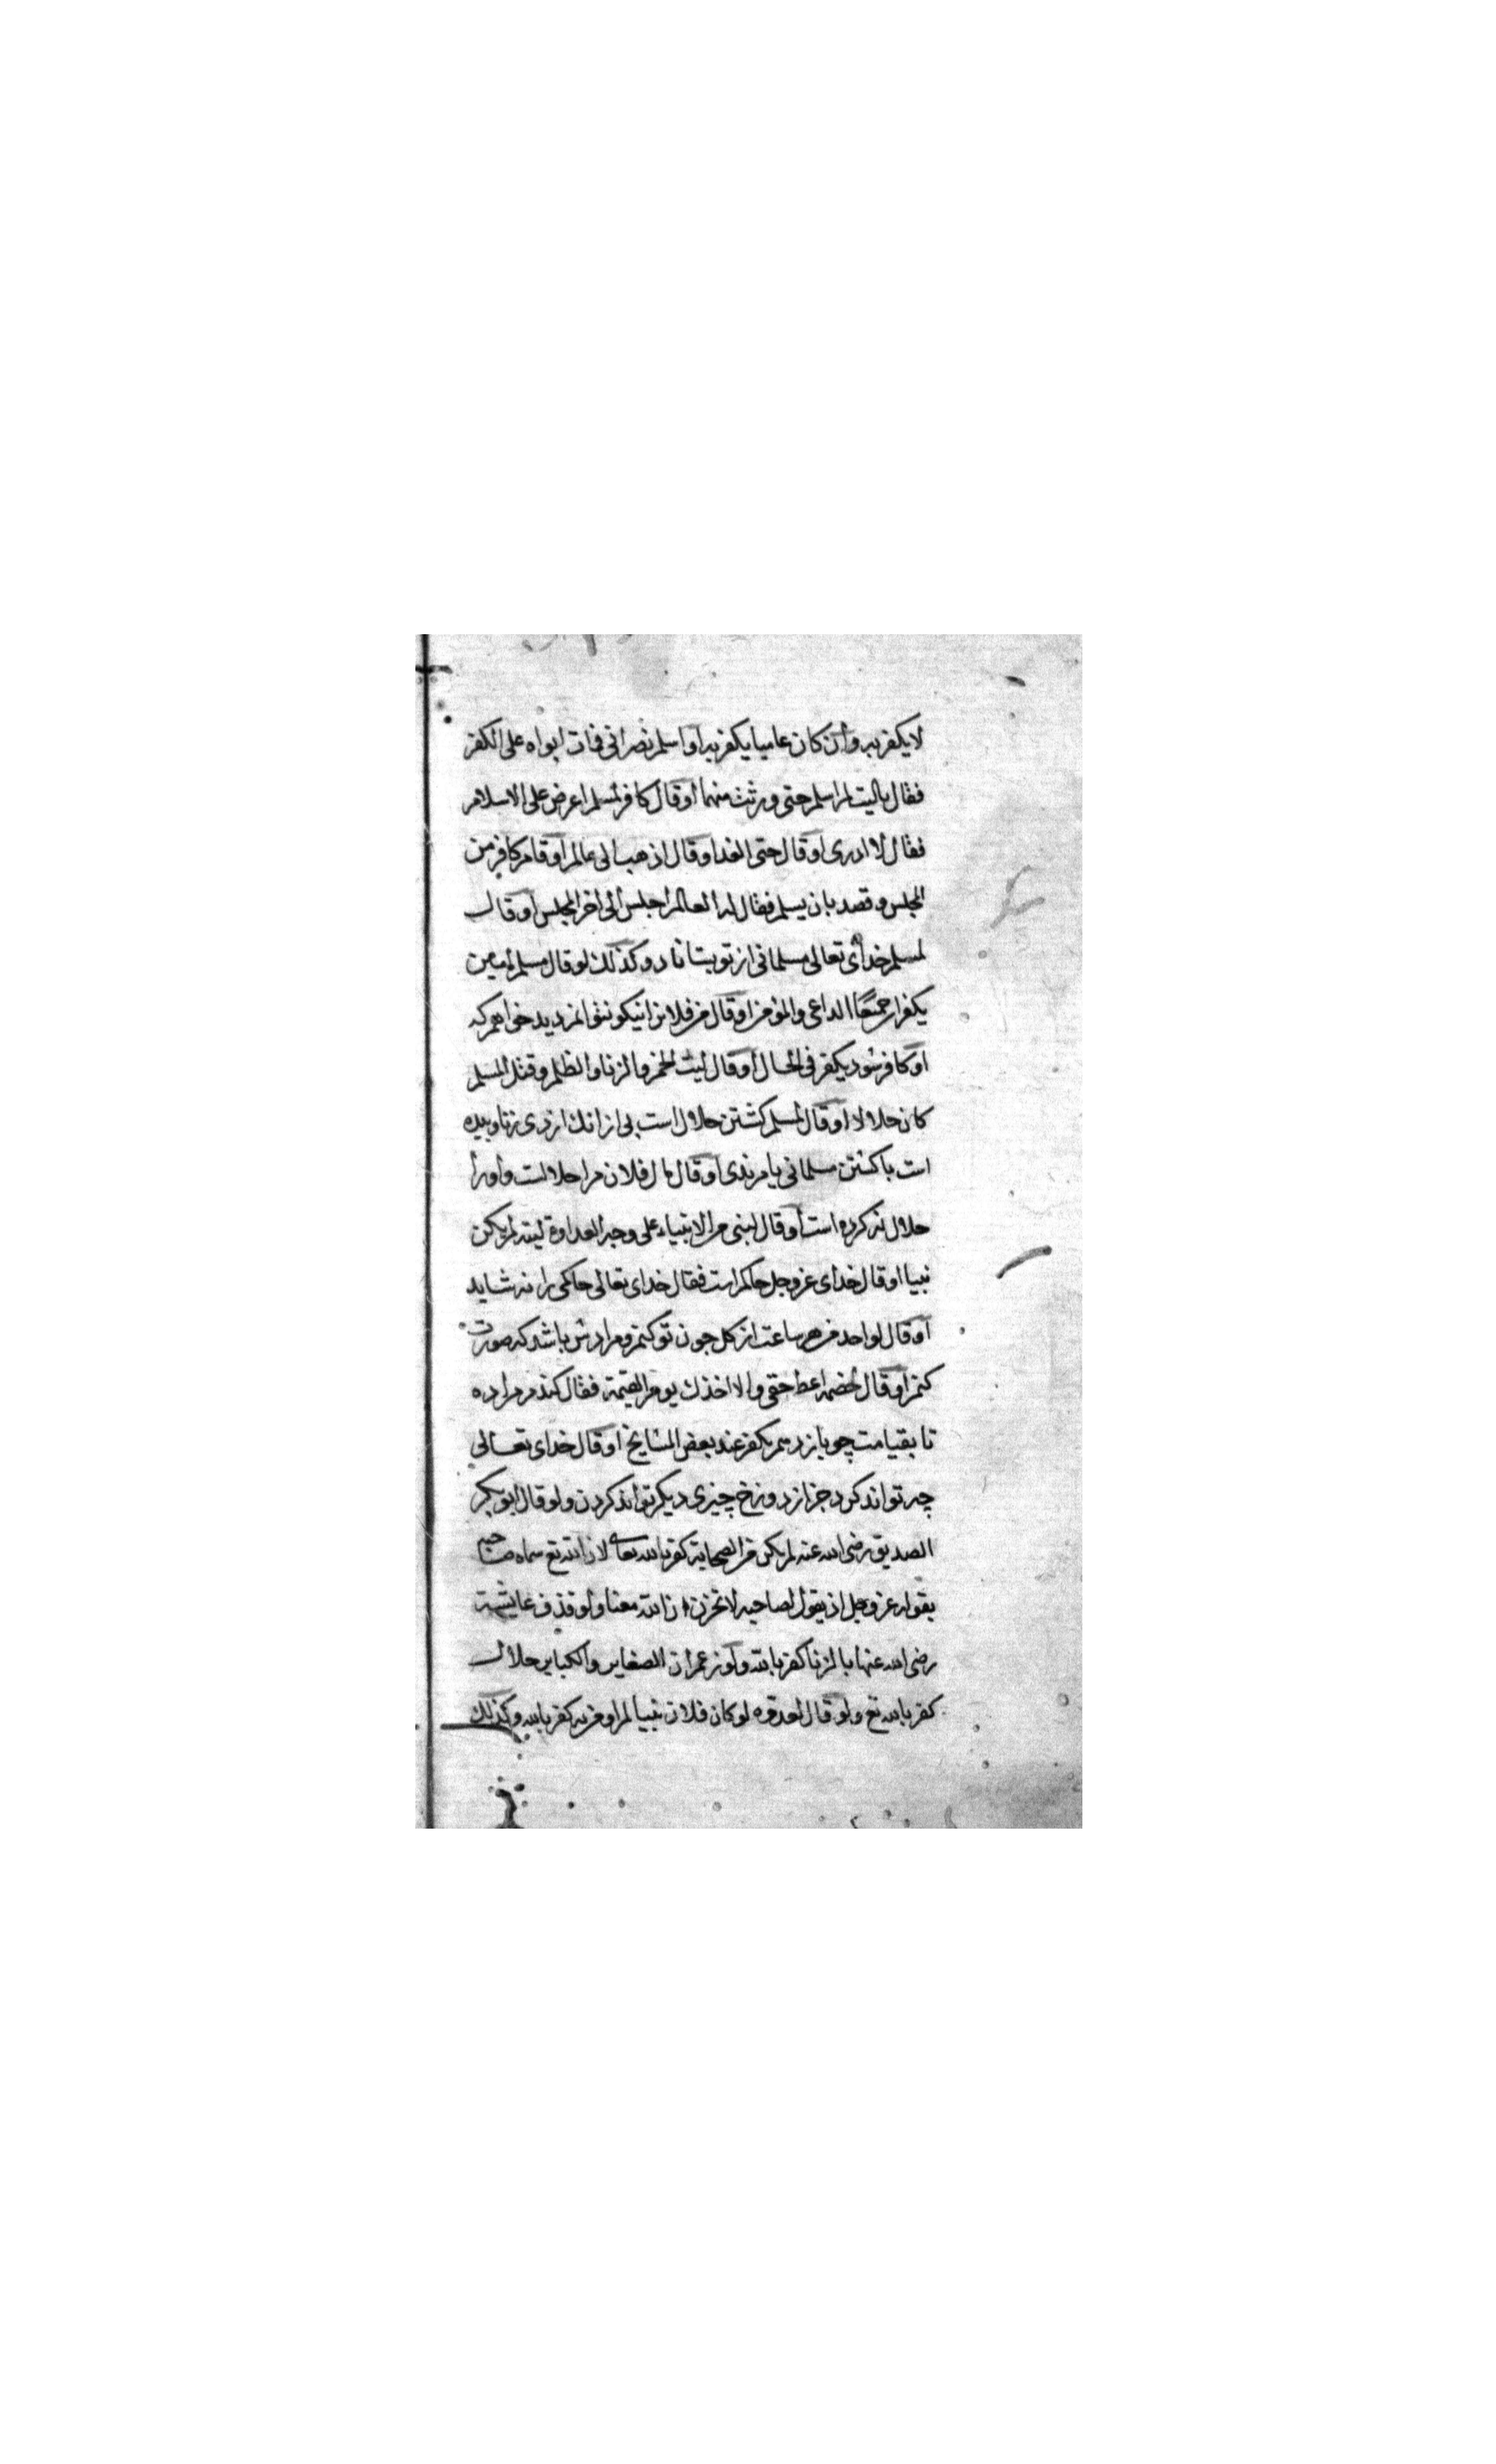 لا يكفر به وان كان عاميا يكفر به او اسلم نصرانى فمات ابواه على الكفر
فقال ياليت لم اسلم حتى ورثت منهما او قال كافر لمسلم اعرض على الاسلام
فقال لا ادرى او قال حتى الغد او قال اذهب الى عالم او قام كافر من
المجلس وقصد بان يسلم فقال له العالم اجلس الى اخر المجلس او قال
لمسلم خداى تعالى مسلمانى از تو بستاناد وكذلك لو قال مسلم امين
يكفران جميعا الداعى والمؤمن او قال من فلانرا نيكو نتوانم ديد خواهم كه
او كافر شود يكفر فى الحال او قال ليت الخمر والزنا والظلم وقتل المسلم
كان حلالا او قال لمسلم كشتن حلال است بى از انك ازدى
است با كشتن مسلمانى يا مرتدى او قال مال فلان مرا حلالست واورا
حلال نه كرده است او قال لنبى من الانبياء على وجه العداوة ليته لم يكن
نبيا او قال خداى عز وجل حاكم است فقال خداى تعالى حاكمى را نه شايد
او قال لواحد من هر ساعت از كل چون تو كنم ومرادش باشد كه صورت
كنم او قال لخصمه اعط حقى والا اخذك يوم القيمة فقال كندم مرا ده
تا بقيامت جو باز دهم يكفر عند بعض المشايخ او قال خداى تعالى
چه تواند كرد جز از دوزخ چيزى ديكر تواند كردن ولو قال ابو بكر
الصديق رضى الله عنه لم يكن من الصحابة كفر بالله تعالى لان الله تع سماه صاحبه
بقوله عز وجل اذ يقول لصاحبه لا تحزن ان الله معنا ولو قذف عايشة
رضى الله عنها بالزنا كفر بالله ولو زعم ان الصغاير والكباير حلال
كفر بالله تع ولو قال لعدوه لو كان فلان نبيا لم اومن به كفر بالله وكذلك